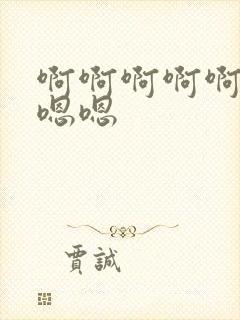 啊啊啊啊啊
嗯嗯
賈誠